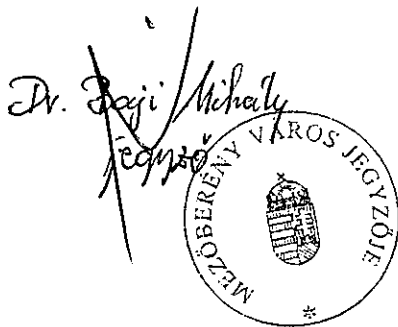 Dr. Baji Mihály
jegyző
MEZŐBERÉNY VÁROS JEGYZŐJE
*